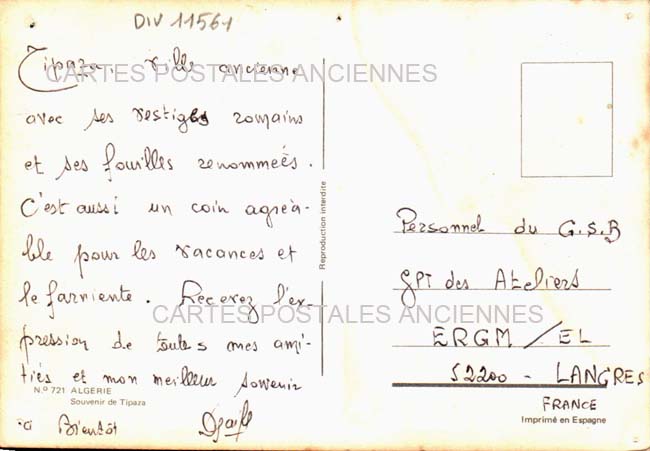 DIV 11561
Tipaza, ville ancienne
CARTES POSTALES ANCIENNES
avec ses vestiges romains
et ses fouilles renommées.
C'est aussi un coin agréa-
ble pour les vacances et
le farniente. Recevez l'ex-
CARTES POSTALES ANCIENNES
pression de toutes mes ami-
tiés et mon meilleur souvenir
N.º 721 ALGERIE
Souvenir de Tipaza
à Bientôt
Reproduction interdite
Personnel du G.S.B
GPT des Ateliers
ERGM/EL
52200 - LANGRES
FRANCE
Imprimé en Espagne